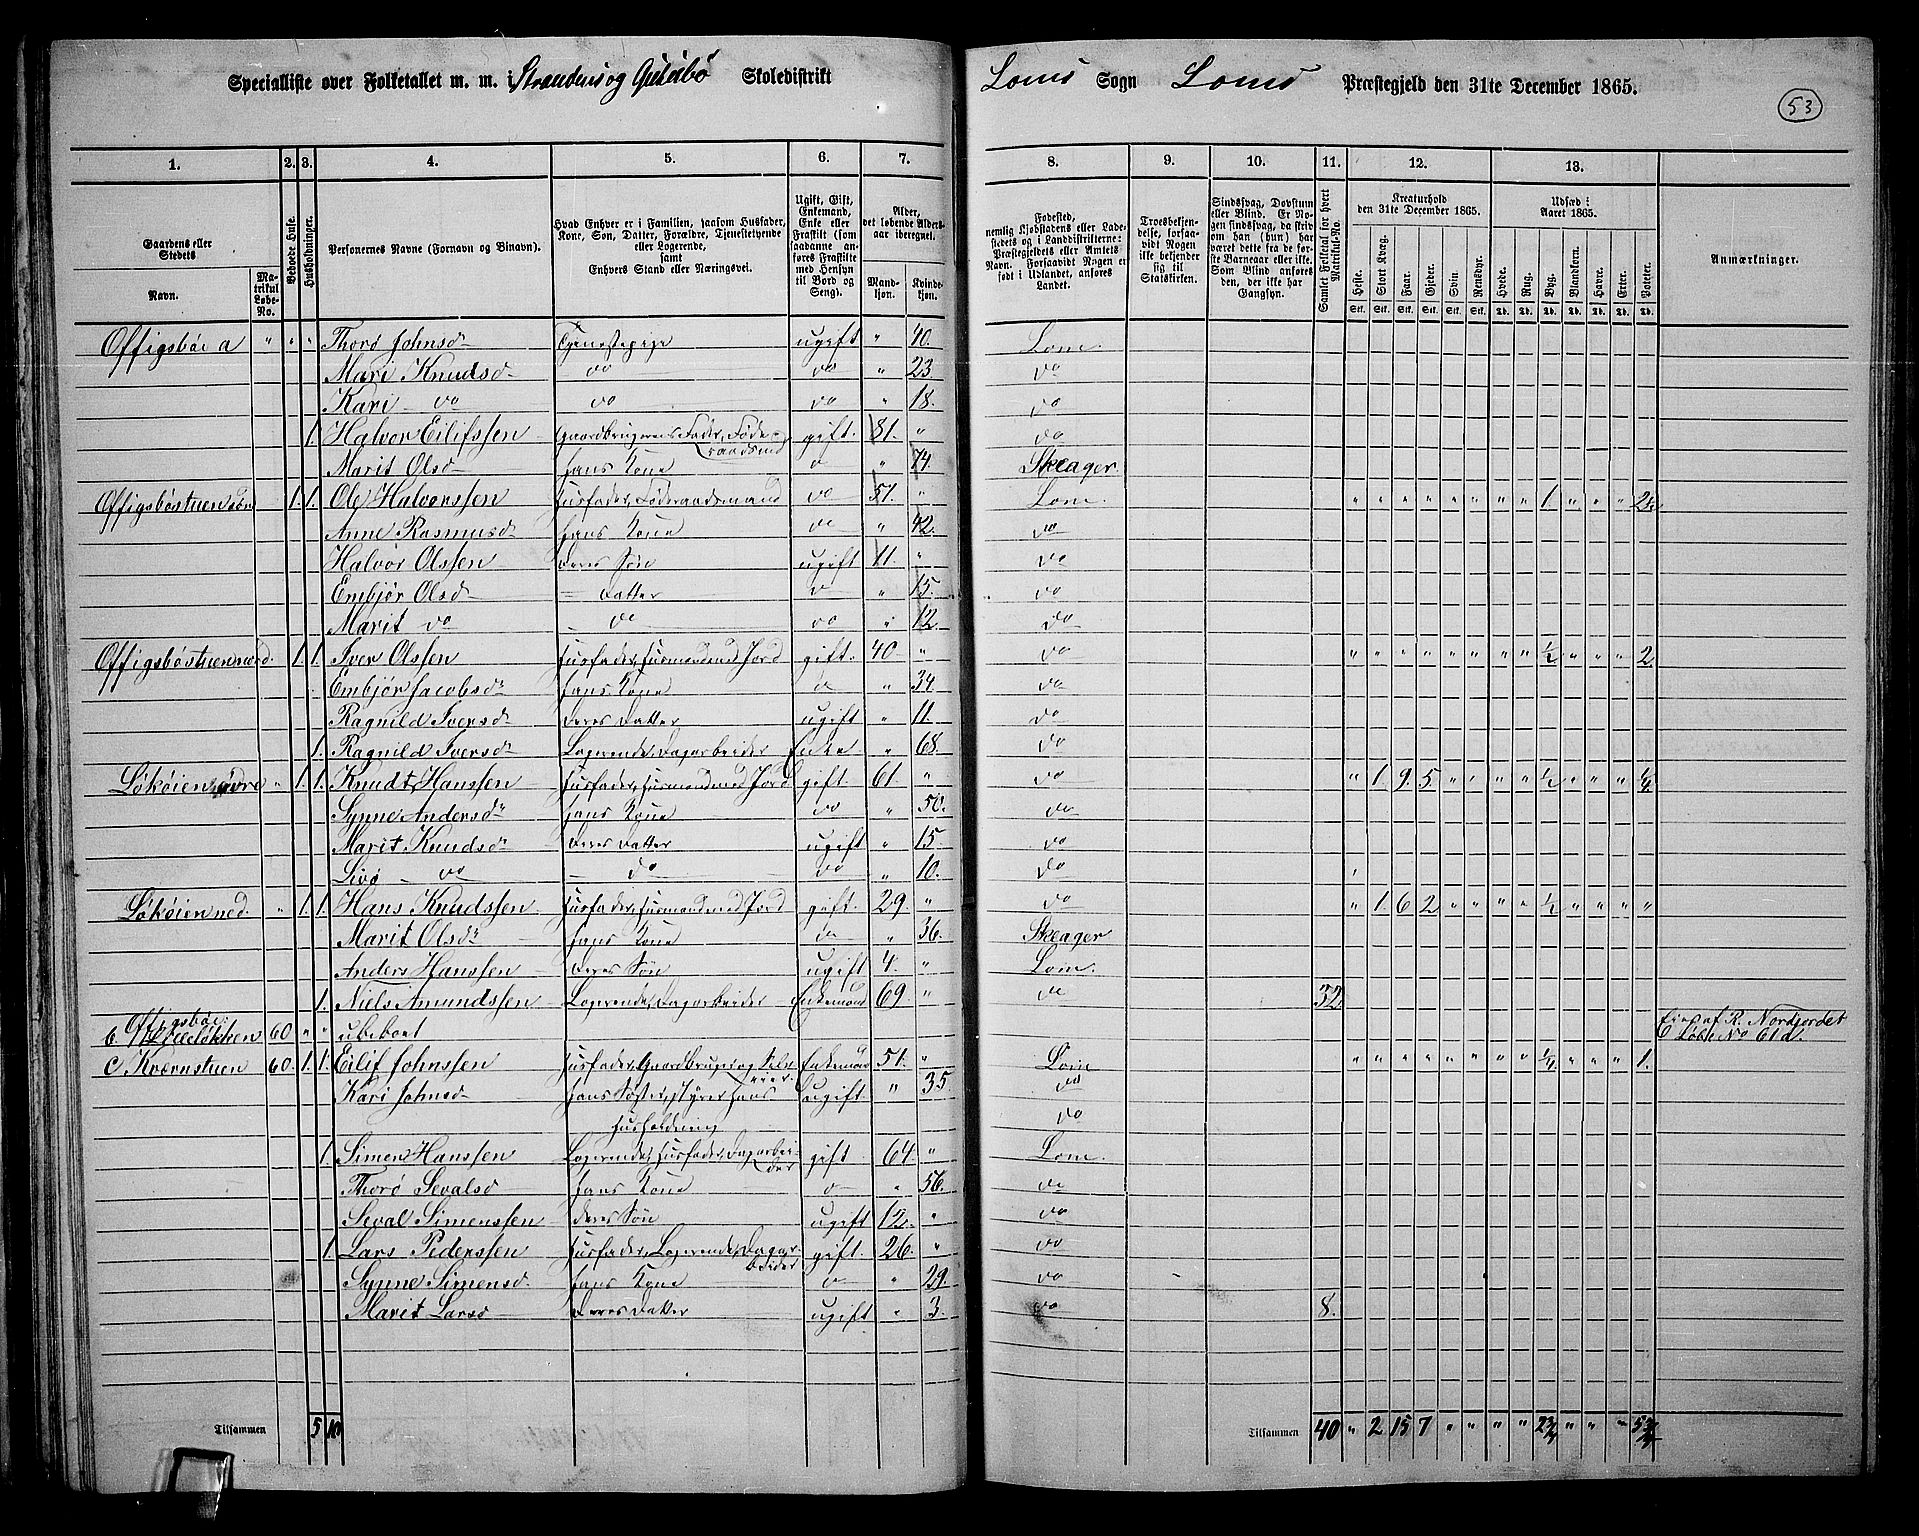 Specialliste over Folketallet m. m. i Strandens og Gusdbø Skoledistrikt
Loms Sogn Loms Præstegjeld den 31te December 1865.
53
1. 2. 3. 4. 5. 6. 7. 8. 9. 10. 11. 12. 13.
Gaardens eller Stedets
Navn.
Matrikul Løbe-No.
Beboede Huse.
Husholdninger.
Personernes Navne (Fornavn og Binavn).
Hvad Enhver er i Familien, saasom Husfader, Kone, Søn, Datter, Forældre, Tjenestetyende eller Logerende, samt Enhvers Stand eller Næringsvei.
Ugift, Gift, Enkemand, Enke eller Fraskilt (som saadanne anføres Fraskilte med Hensyn til Bord og Seng).
Alder, det løbende Alders-aar iberegnet.
Mandkjøn. Kvindekjøn.
Fødested, nemlig Kjøbstadens eller Ladestedets og i Landdistrikterne: Præstegjeldets eller Amtets Navn. Forsaavidt Nogen er født i Udlandet, anføres Landet.
Troesbekjendelse, forsaavidt Nogen ikke bekjender sig til Statskirken.
Sindssvag, Døvstum eller Blind. Er Nogen sindssvag, da skrives om han (hun) har været dette fra de første Barneaar eller ikke. Som Blind anføres den, der ikke har Gangsyn.
Samlet Folketal for hvert Matrikul-No.
Kreaturhold den 31te December 1865.
Heste. Stort Kvæg. Faar. Gjeder. Svin. Rensdyr.
Udsæd i Aaret 1865.
Hvede. Rug. Byg. Blandkorn. Havre. Erter. Poteter.
Anmærkninger.
Offigsbøe a " " " Thorø Johnsd Tjenestepige ugift " 40. Lom.
Mari Knudsd do do " 23 do
Kari do do do " 18. do
1. Halvor Eilifssen Gaardbrugerens Fader, Føderaadsmd gift. 81. " do
Marit Olsd hans Kone d " 74. Skeager.
Offigsbøstuen søn 1. 1. Ole Halvorssen Husfader, Føderaadsmand do 51. " Lom. " " " " " " " " 1. " " " 2
Anne Rasmusd hans Kone do " 42. do
Halvor Olssen Deres Søn ugift 11. " do
Embjør Olsd = Datter d " 15. do
Marit do - do do " 12. do
Offigsbøstuen nord. 1. 1. Iver Olssen Husfader, Husmand med Jord gift. 40 " do " " " " " " " " 1/2 " " " 2
Embjør Jacobsd hans Kone d " 34 do
Ragnild Iversd Deres Datter ugift " 11. do
1. Ragnild Iversd Logerende, Dagarbeider Enke " 68. do
Løkøien øvre " 1. 1. Knudt Hanssen Husfader, Husmand med Jord gift 61. " do " 1 9. 5. " " " " 1/2 " " "
Synne Andersd hans Kone do " 50. do
Marit Knudsd Deres Datter ugift " 15. do
Livø do - do do " 10. do
Løkøien ned. " 1. 1. Hans Knudssen Husfader, Husmand med Jord gift 29. " do " 1. 6 2 " " " " 1/2 " " " "
Marit Olsd hans Kone d " 36. Skeager
Anders Hanssen Deres Søn ugift 4. " Lom.
1. Niels Amundssen Logerende, Dagarbeider Enkemand 69. " do 32
Offigsbøe:
60 " " ubeboet Eies af R. Nordjordet Løbe No 61d.
c. Kværnstuen 60. 1. 1. Eilif Johnssen Husfader, Gaardbruger og Selveier Enkemand 51. " Lom " " " " " " " " 1/4. " " " 1.
Kari Johnsd hans Søster, styrer hans Husholdning ugift " 35. do
do
1. Simen Hanssen Logerende, Husfader, Dagarbeider gift 64. " Lom.
Thorø Sevalsd hans Kone d " 56. do
Seval Simenssen Deres Søn ugift 12. " do
1. Lars Pederssen Husfader, Logerende, Dagarbeider gift. 26. " do
Synne Simensd hans Kone d " 29. do
Marit Larsd Deres Datter ugift " 3. do 8.
Tilsammen 5 10
Tilsammen 40 " 2 15 7 " " " " 2 3/4 " " " 5 3/4